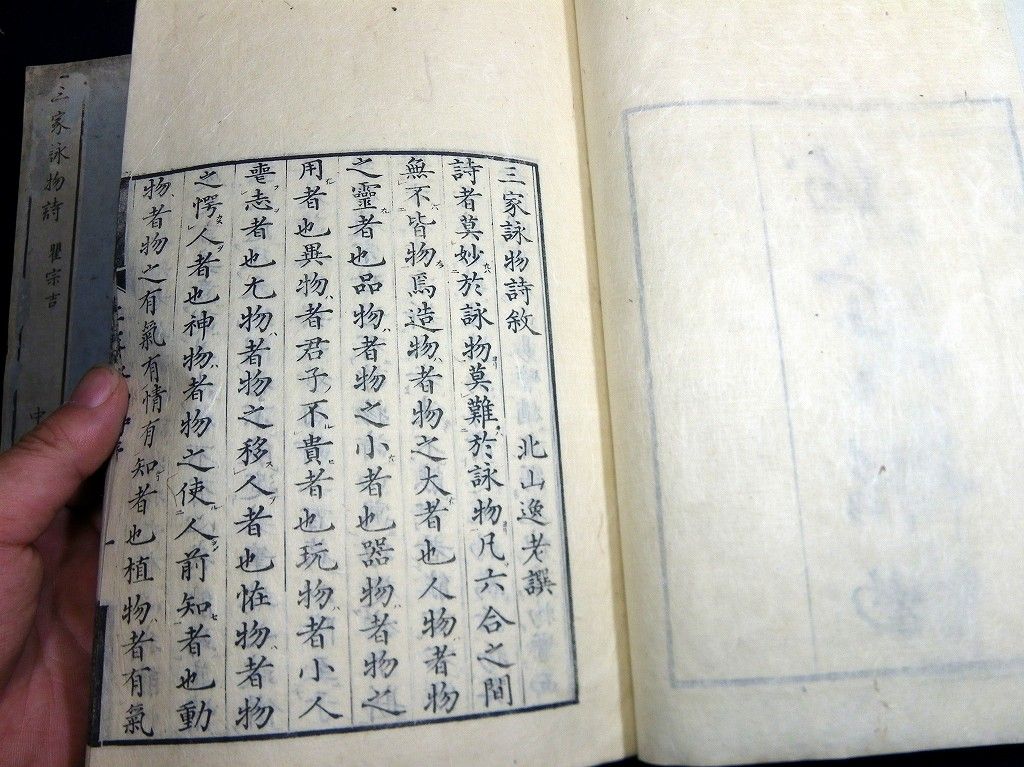 三家詠物詩敘
北山逸老譔
詩者莫妙於詠物莫難於詠物凡六合之間
無不皆物焉造物者物之大者也人物者物
之靈者也品物者物之小者也器物者物之
用者也異物者君子不貴者也玩物者小人
喪志者也尤物者物之移人者也怪物者物
之愕人者也神物者物之使人前知者也動
物者物之有氣有情有知者也植物者有氣
三家詠物詩 瞿宗吉
中